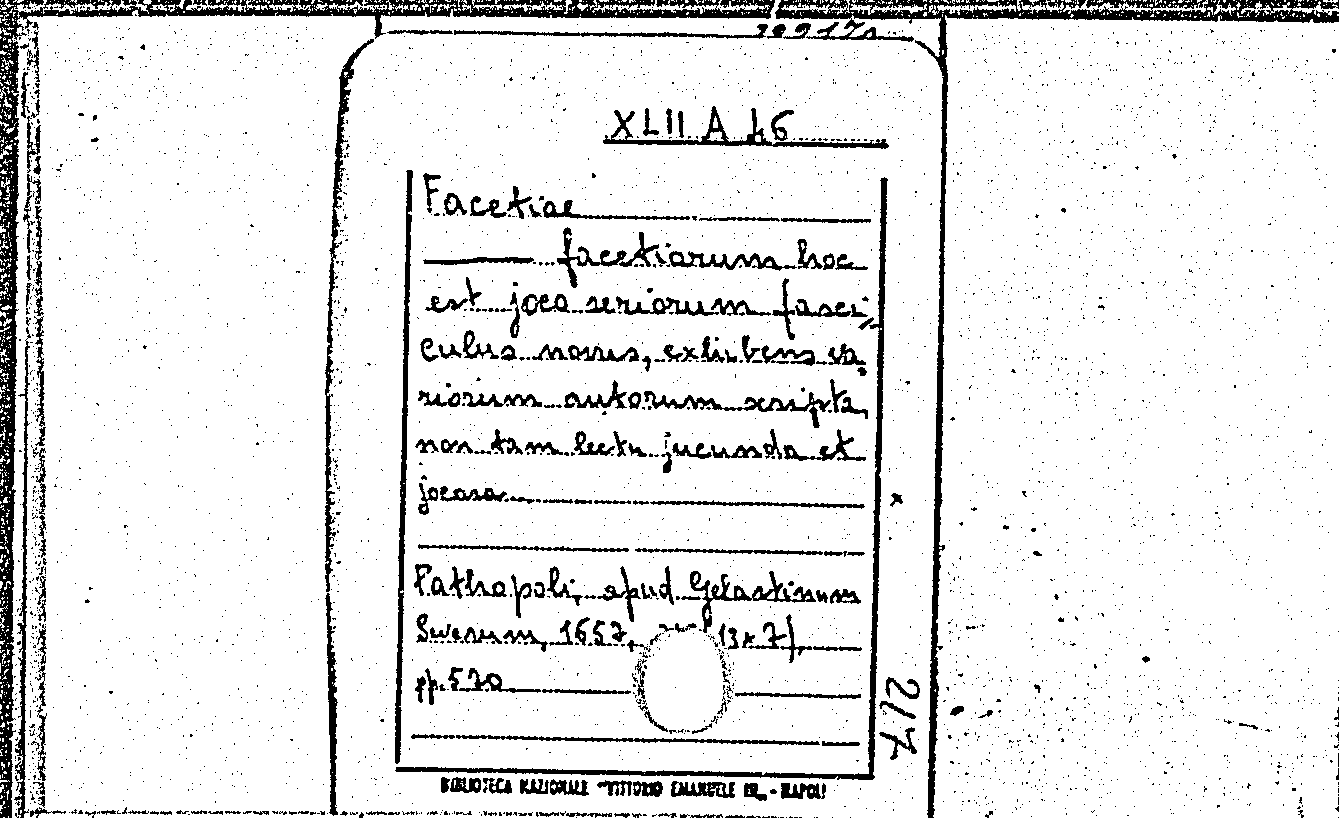 XLII A 46
Facetiae
facetiarum hoc
est joco seriorum fasci
culus novus, exhibens va
riorum autorum scripta,
non tam lectu jucunda et
jocosa
Pathopoli, apud Gelastinum
Severum, 1657, (13x7),
pp. 570
217
BIBLIOTECA NAZIONALE "VITTORIO EMANUELE III„ - NAPOLI